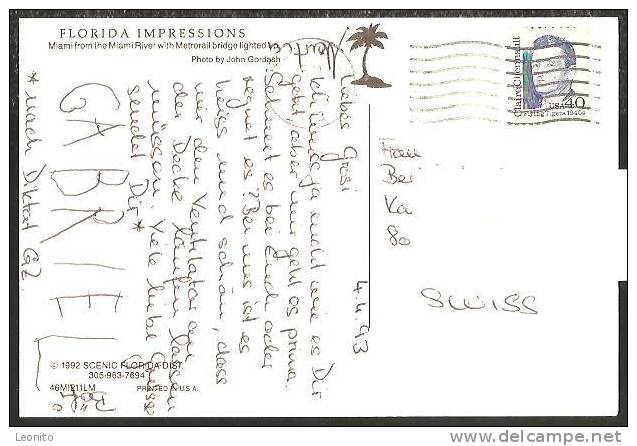 FLORIDA IMPRESSIONS
Miami from the Miami River with Metrorail bridge lighted
Photo by John Gordash
Claire Chennault
USA 40
Flying Tigers 1940s
4.4.93
Liebes Grosi
Ich weiss ja nicht wie es Dir
geht, aber mir geht es prima.
Schneit es bei Euch oder
regnet es? Bei uns ist es
heiss und schön, dass
wir den Ventilator an
der Decke laufen lassen
müssen. Viele liebe Grüsse
sendet Dir*
GABRIEL
*nach Diktat GZ.
Frau
Be
Ka
80
SWISS
© 1992 SCENIC FLORIDA DIST.
305-963-7694
46MI211LM
PRINTED IN U.S.A.
Leonito
www.delcampe.net